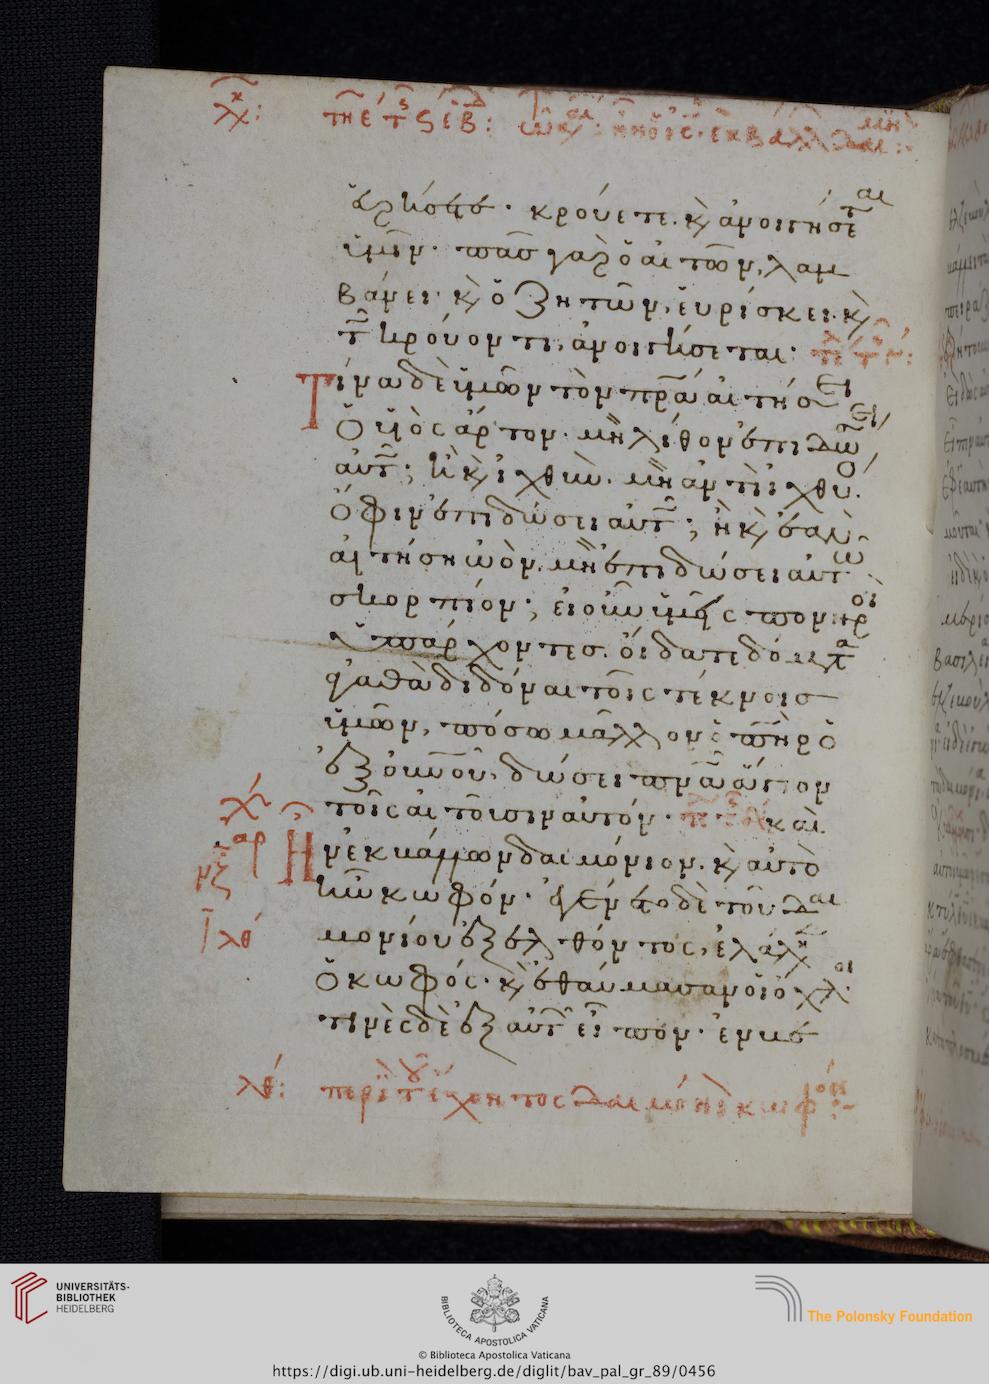 εὑρήσετε· κρούετε. κ(αὶ) ἀνοιγήσεται
ὑμῖν· πᾶς γὰρ ὁ αἰτῶν, λαμ
βάνει· κ(αὶ) ὁ ζητῶν, εὑρίσκει. κ(αὶ)
τῷ κρούοντι, ἀνοιγήσεται:
Τίνα δὲ ὑμῶν τὸν πρ̅α αἰτήσει
ὁ υἱὸς ἄρτον. μὴ λίθον ἐπιδώσει
αὐτῷ; ἢ κ(αὶ) ἰχθὺν. μὴ ἀντὶ ἰχθύο
ὄφιν ἐπιδώσει αὐτῷ; ἢ κ(αὶ) ἐὰν
αἰτήση ὠὸν. μὴ ἐπιδώσει αὐτῷ
σκορπίον; εἰ οὖν ὑμεῖς πονηροὶ
ὑπάρχοντες. οἴδατε δόματα
ἀγαθὰ διδόναι τοῖς τέκνοις
ὑμῶν, πόσω μᾶλλον ὁ πη̅ρ ὁ
ἐξ ο̅υ̅ν̅ο̅υ̅, δώσει πν̅α ἅγιον
τοῖς αἰτοῦσιν αὐτόν· καὶ
Ἦν ἐκβάλλων δαιμόνιον. κ(αὶ) αὐτὸ
ἦν κωφόν· ἐγένετο δὲ τοῦ δαι
μονίου ἐξελθόντος, ἐλάλη
ὁ κωφός· κ(αὶ) ἐθαύμασαν οἱ ὄχλοι
τινὲς δὲ ἐξ αὐτῶν εἶπον· ἐν βε
λθ: περὶ τοῦ ἔχοντος δαιμόνιον κωφόν:
UNIVERSITÄTS-
BIBLIOTHEK
HEIDELBERG
BIBLIOTECA APOSTOLICA VATICANA
The Polonsky Foundation
© Biblioteca Apostolica Vaticana
https://digi.ub.uni-heidelberg.de/diglit/bav_pal_gr_89/0456